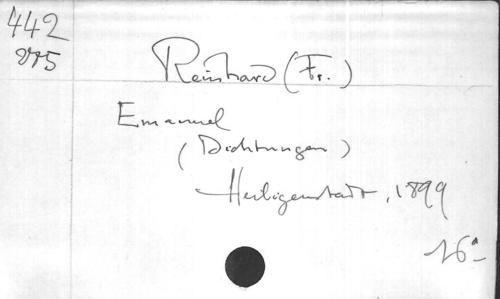 442
Reinhard (Fr.)
Emanuel
(Dichtungen)
Heiligenstadt, 1899
16º